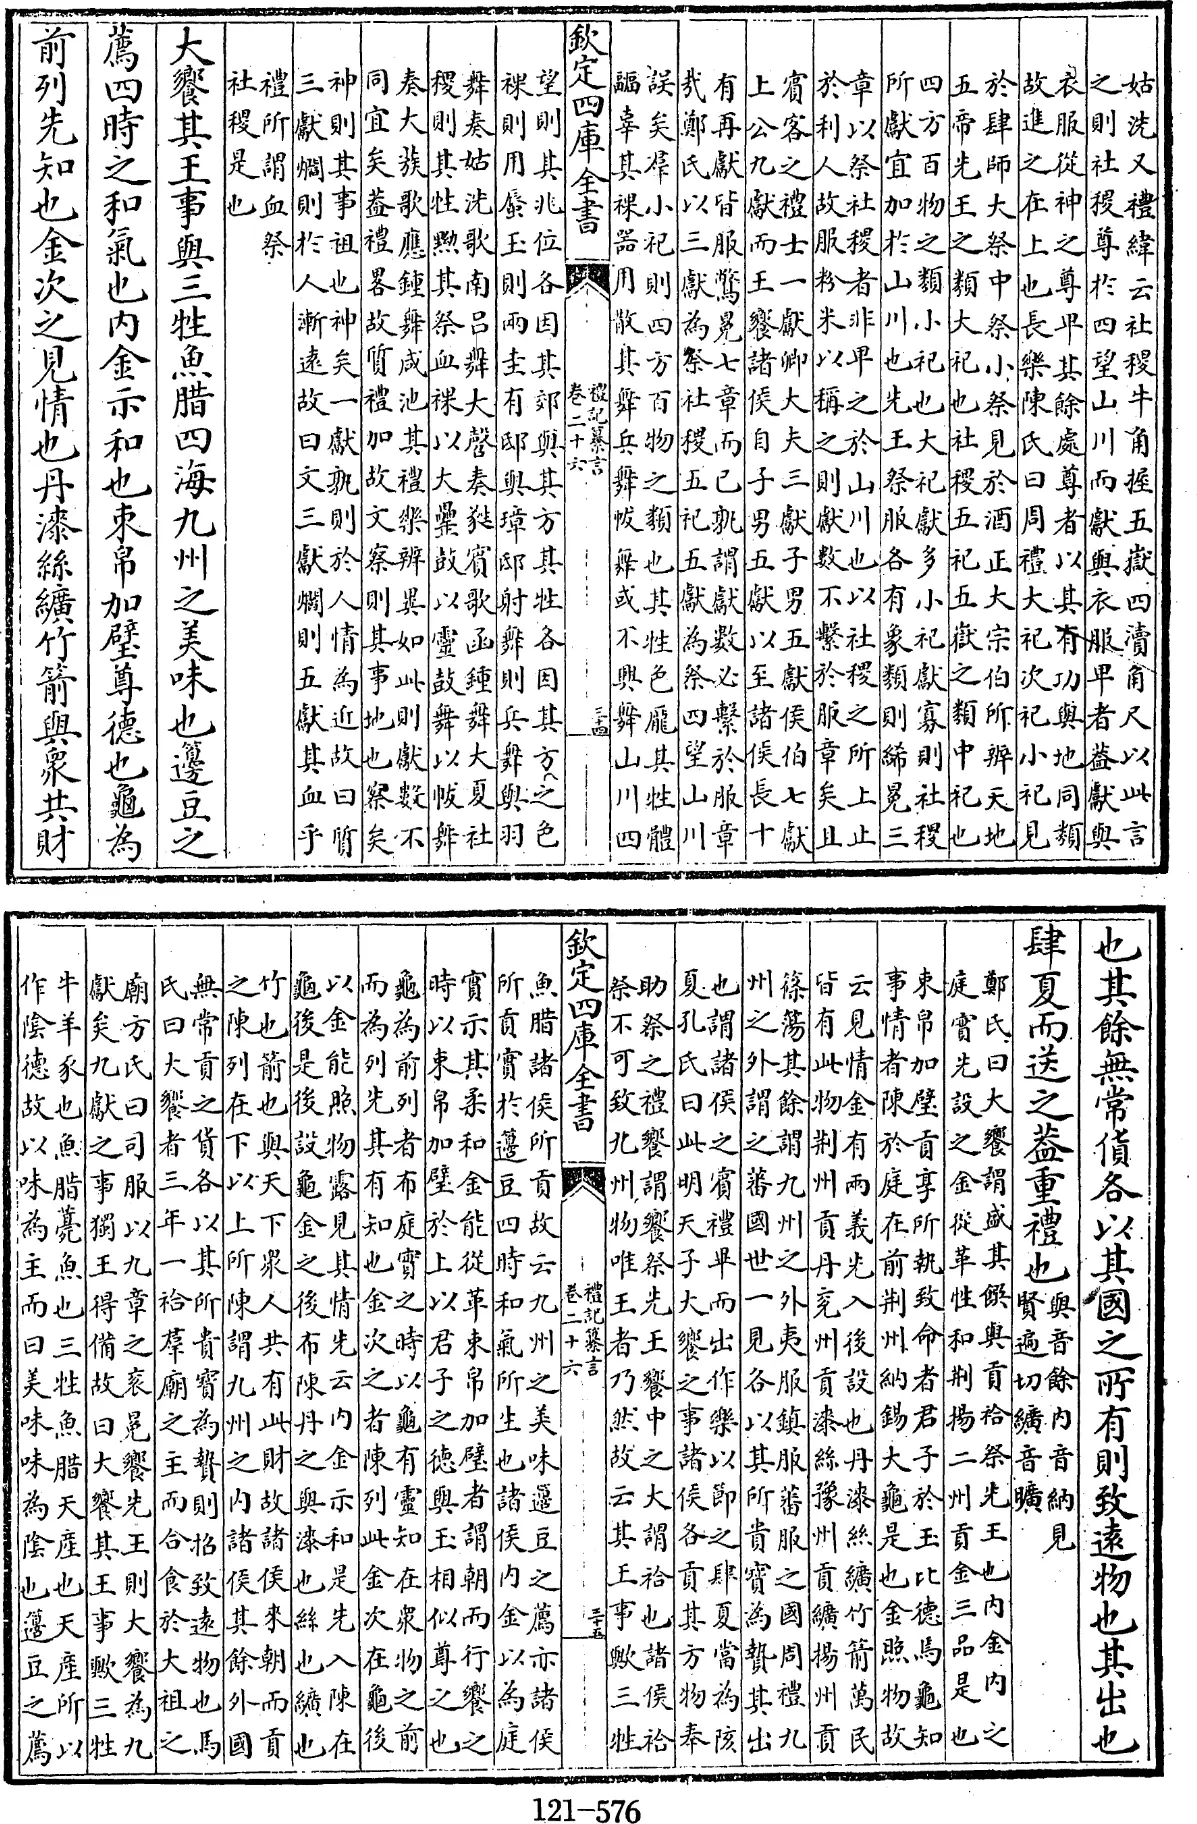 姑洗又禮緯云社稷牛角握五嶽四瀆角尺以此言
之則社稷尊於四望山川而獻與衣服卑者葢獻與
衣服從神之尊卑其餘處尊者以其有功與地同類
故進之在上也長樂陳氏曰周禮大祀次祀小祀見
於肆師大祭中祭小祭見於酒正大宗伯所辨天地
五帝先王之類大祀也社稷五祀五嶽之類中祀也
四方百物之類小祀也大祀獻多小祀獻寡則社稷
所獻宜加於山川也先王祭服各有象類則絺冕三
章以祭社稷者非卑之於山川也以社稷之所上止
於利人故服粉米以稱之則獻數不繫於服章矣且
賓客之禮士一獻卿大夫三獻子男五獻侯伯七獻
上公九獻而王饗諸侯自子男五獻以至諸侯長十
有再獻皆服鷩冕七章而已孰謂獻數必繫於服章
哉鄭氏以三獻為祭社稷五祀五獻為祭四望山川
誤矣羣小祀則四方百物之類也其牲色尨其牲體
疈辜其祼器用散其舞兵舞帗舞或不興舞山川四
欽定四庫全書
禮記纂言
卷二十六
三十四
望則其兆位各因其郊與其方其牲各因其方之色
祼則用蜃玉則兩圭有邸與璋邸射舞則兵舞與羽
舞奏姑洗歌南呂舞大㲈奏蕤賓歌函鍾舞大夏社
稷則其牲黝其祭血祼以大罍鼓以靈鼓舞以帗舞
奏大蔟歌應鍾舞咸池其禮樂辨異如此則獻數不
同宜矣葢禮畧故質禮加故文察則其事地也察矣
神則其事祖也神矣一獻孰則於人情為近故曰質
三獻爓則於人漸遠故曰文三獻爓則五獻其血乎
禮所謂血祭
社稷是也
大饗其王事與三牲魚腊四海九州之美味也籩豆之
薦四時之和氣也内金示和也束帛加璧尊德也龜為
前列先知也金次之見情也丹漆絲纊竹箭與衆共財
也其餘無常貨各以其國之所有則致遠物也其出也
肆夏而送之葢重禮也
與音餘内音納見
賢遍切纊音曠
鄭氏曰大饗謂盛其饌與貢祫祭先王也内金内之
庭實先設之金從革性和荆揚二州貢金三品是也
束帛加璧貢享所執致命者君子於玉比德焉龜知
事情者陳於庭在前荆州納錫大龜是也金照物故
云見情金有兩義先入後設也丹漆絲纊竹箭萬民
皆有此物荆州貢丹兖州貢漆絲豫州貢纊揚州貢
篠簜其餘謂九州之外夷服鎮服蕃服之國周禮九
州之外謂之蕃國世一見各以其所貴寶為贄其出
也謂諸侯之賓禮畢而出作樂以節之肆夏當為陔
夏孔氏曰此明天子大饗之事諸侯各貢其方物奉
助祭之禮饗謂饗祭先王饗中之大謂祫也諸侯祫
祭不可致九州物唯王者乃然故云其王事歟三牲
欽定四庫全書
禮記纂言
卷二十六
三十五
魚腊諸侯所貢故云九州之美味籩豆之薦亦諸侯
所貢實於籩豆四時和氣所生也諸侯内金以為庭
實示其柔和金能從革束帛加璧者謂朝而行饗之
時以束帛加璧於上以君子之德與玉相似尊之也
龜為前列者布庭實之時以龜有靈知在衆物之前
而為列先其有知也金次之者陳列此金次在龜後
以金能照物露見其情先云内金示和是先入陳在
龜後是後設龜金之後布陳丹之與漆也絲也纊也
竹也箭也與天下衆人共有此財故諸侯來朝而貢
之陳列在下以上所陳謂九州之内諸侯其餘外國
無常貢之貨各以其所貴寶為贄則招致遠物也馬
氏曰大饗者三年一祫羣廟之主而合食於大祖之
廟方氏曰司服以九章之衮冕饗先王則大饗為九
獻矣九獻之事獨王得備故曰大饗其王事歟三牲
牛羊豕也魚腊薧魚也三牲魚腊天產也天產所以
作陰德故以味為主而曰美味味為陰也籩豆之薦
121-576